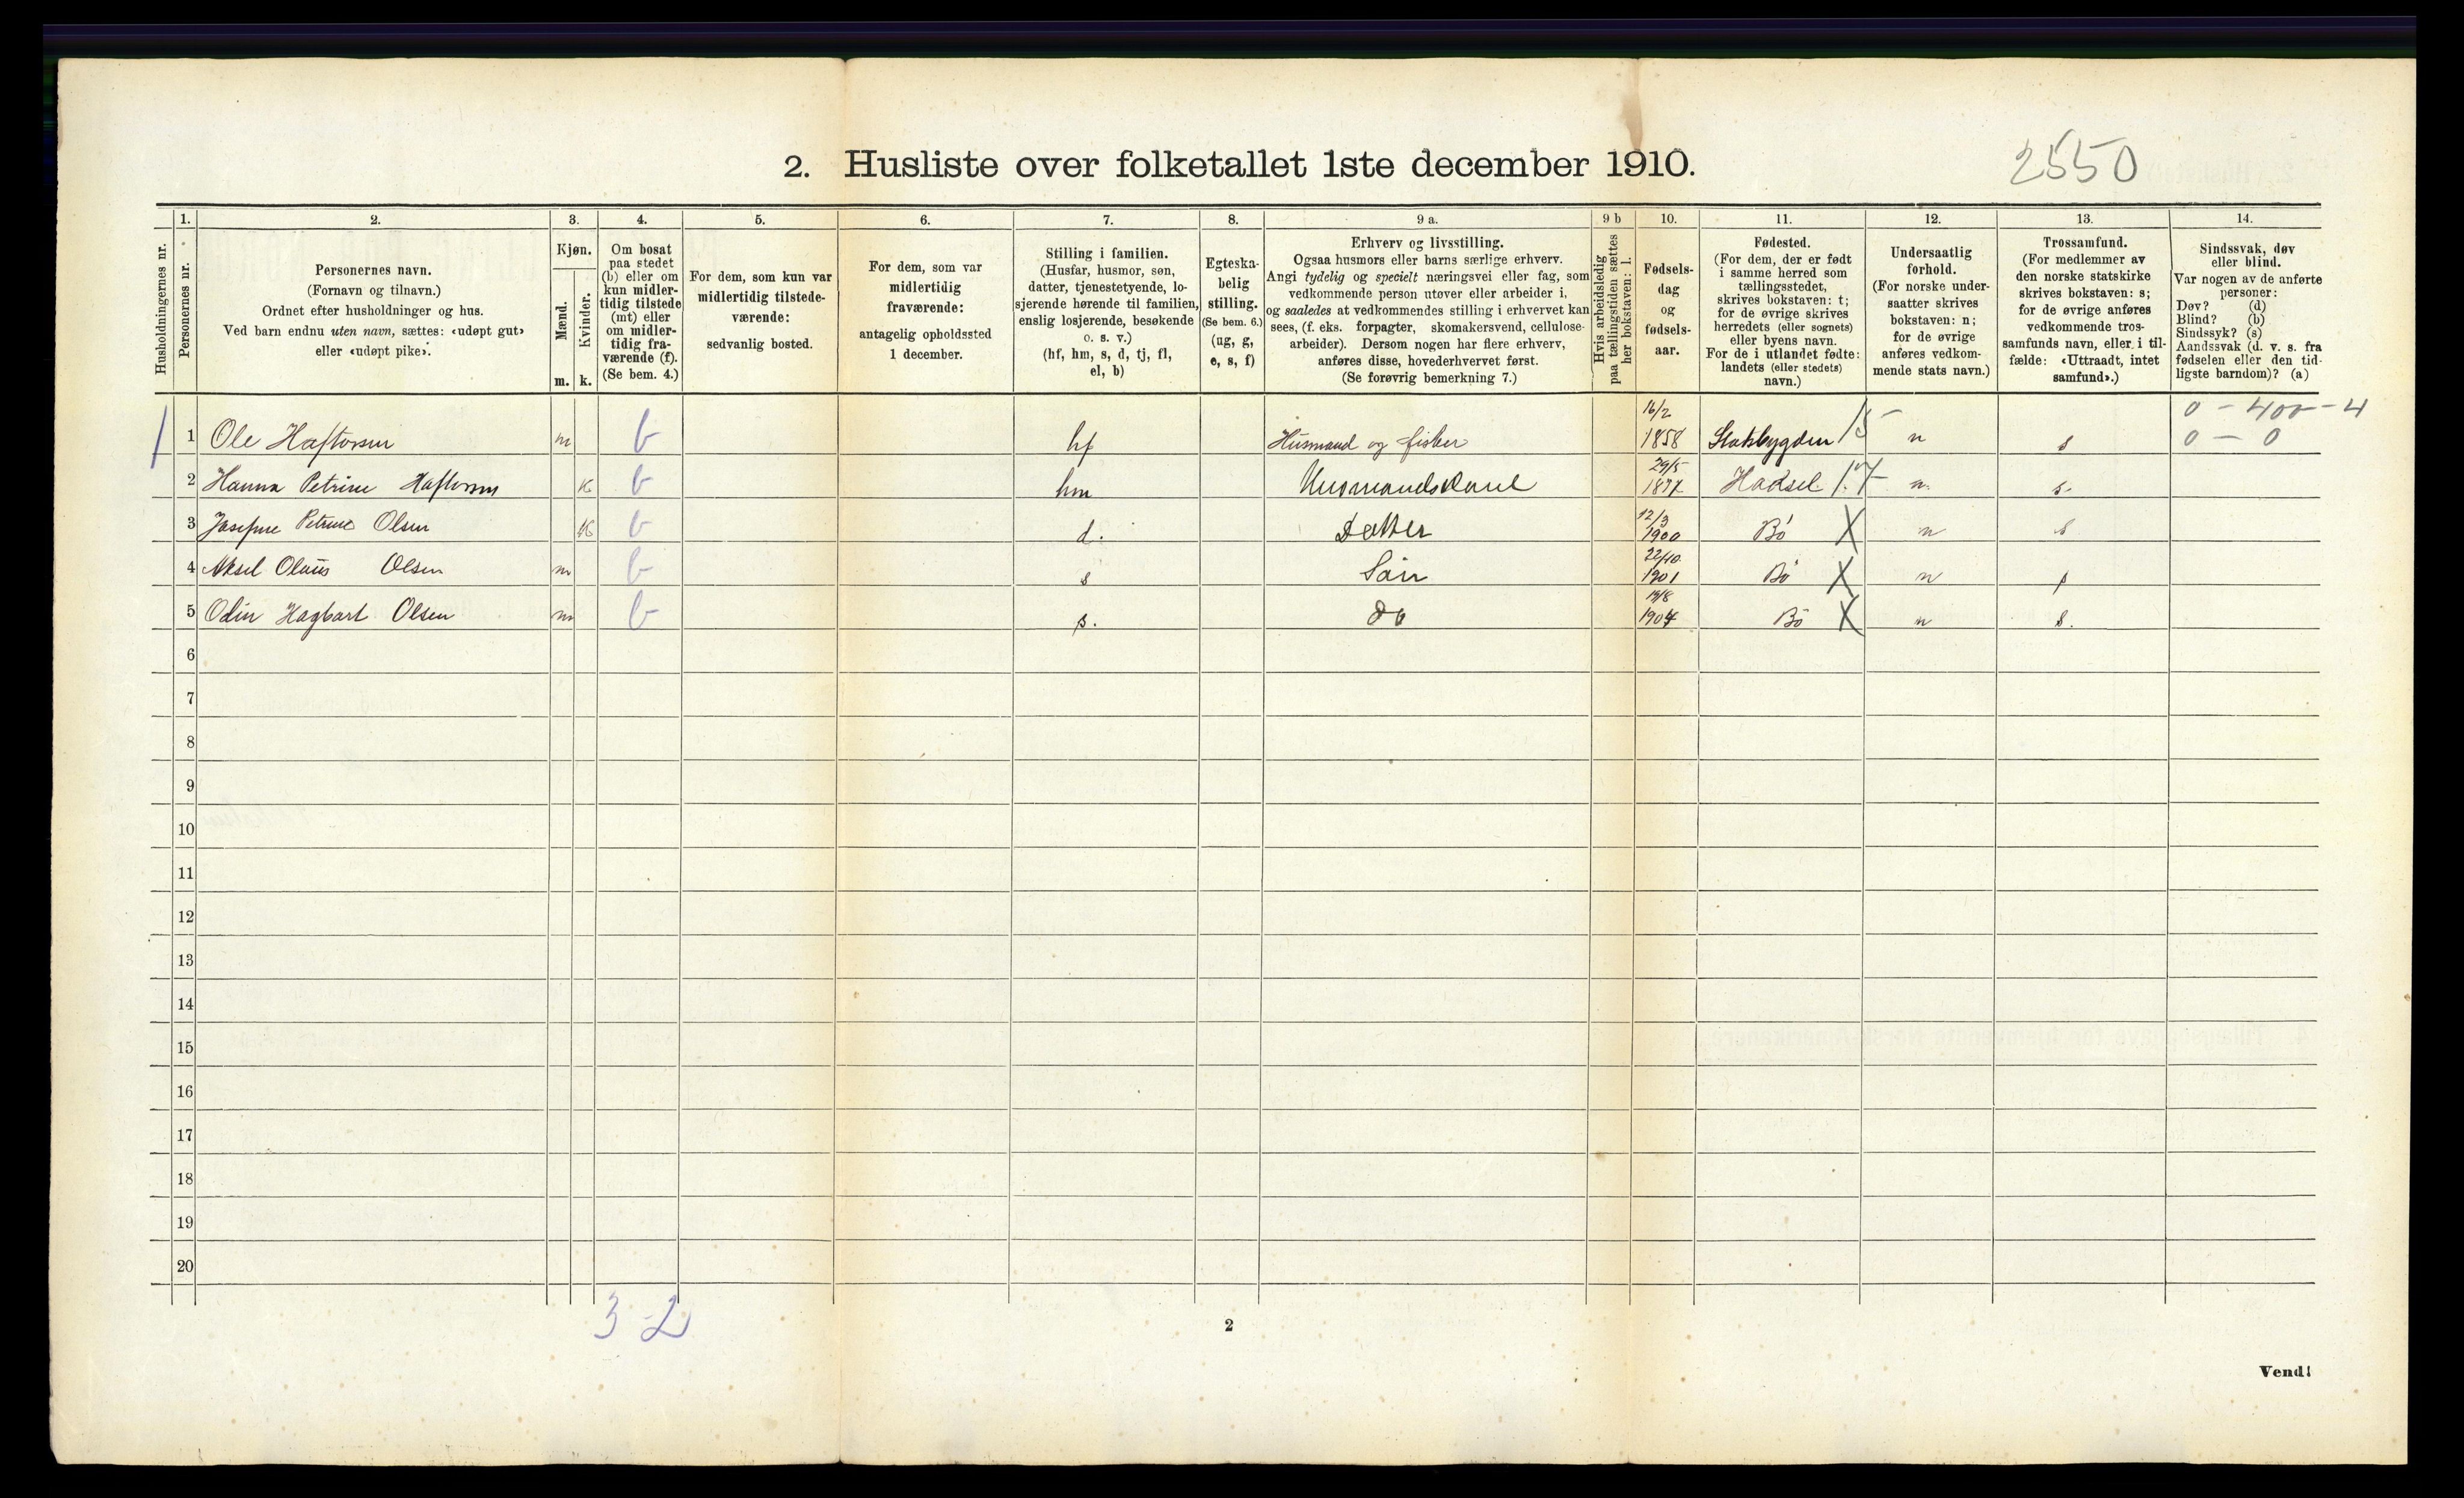 2. Husliste over folketallet 1ste december 1910.
2550
Husholdningernes nr.
1.
Personernes nr.
2.
Personernes navn.
(Fornavn og tilnavn.)
Ordnet efter husholdninger og hus.
Ved barn endnu uten navn, sættes: «udøpt gut»
eller «udøpt pike».
3.
Kjøn.
Mænd.
Kvinder.
m. k.
4.
Om bosat
paa stedet
(b) eller om
kun midler-
tidig tilstede
(mt) eller
om midler-
tidig fra-
værende (f).
(Se bem. 4.)
5.
For dem, som kun var
midlertidig tilstede-
værende:
sedvanlig bosted.
6.
For dem, som var
midlertidig
fraværende:
antagelig opholdssted
1 december.
7.
Stilling i familien.
(Husfar, husmor, søn,
datter, tjenestetyende, lo-
sjerende hørende til familien,
enslig losjerende, besøkende
o. s. v.)
(hf, hm, s, d, tj, fl,
el, b)
8.
Egteska-
belig
stilling.
(Se bem. 6.)
(ug, g,
e, s, f)
9 a.
Erhverv og livsstilling.
Ogsaa husmors eller barns særlige erhverv.
Angi tydelig og specielt næringsvei eller fag, som
vedkommende person utøver eller arbeider i,
og saaledes at vedkommendes stilling i erhvervet kan
sees, (f. eks. forpagter, skomakersvend, cellulose-
arbeider). Dersom nogen har flere erhverv,
anføres disse, hovederhvervet først.
(Se forøvrig bemerkning 7.)
9 b
Hvis arbeidsledig
paa tællingstiden sættes
her bokstaven: l.
10.
Fødsels-
dag
og
fødsels-
aar.
11.
Fødested.
(For dem, der er født
i samme herred som
tællingsstedet,
skrives bokstaven: t;
for de øvrige skrives
herredets (eller sognets)
eller byens navn.
For de i utlandet fødte:
landets (eller stedets)
navn.)
12.
Undersaatlig
forhold.
(For norske under-
saatter skrives
bokstaven: n;
for de øvrige
anføres vedkom-
mende stats navn.)
13.
Trossamfund.
(For medlemmer av
den norske statskirke
skrives bokstaven: s;
for de øvrige anføres
vedkommende tros-
samfunds navn, eller i til-
fælde: «Uttraadt, intet
samfund».)
14.
Sindssvak, døv
eller blind.
Var nogen av de anførte
personer:
Døv? (d)
Blind? (b)
Sindssyk? (s)
Aandssvak (d. v. s. fra
fødselen eller den tid-
ligste barndom)? (a)
0 - 400 - 4
1 1 Ole Haftorsen m b hf Husmand og fisker 16/2 1858 15 n s 0 - 0
2 Hanna Petrine Haftorsen k b hm Husmandskone 29/5 Hadsel 17 n. s.
3 Josefine Petrine Olsen k b d. Datter 12/3 1900 Bö X n s
4 Aksel Olaus Olsen m b s Sön 22/10 1901 Bö X n s
5 Odin Hagbart Olsen m b s. do 1904 Bö X n s.
6
7
8
9
10
11
12
13
14
15
16
17
18
19
20
3-2
2
Vend!